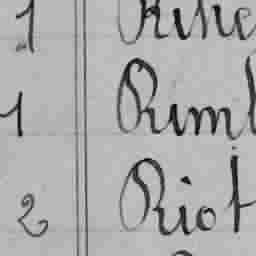 1 Rine
1 Rimb
2 Riot